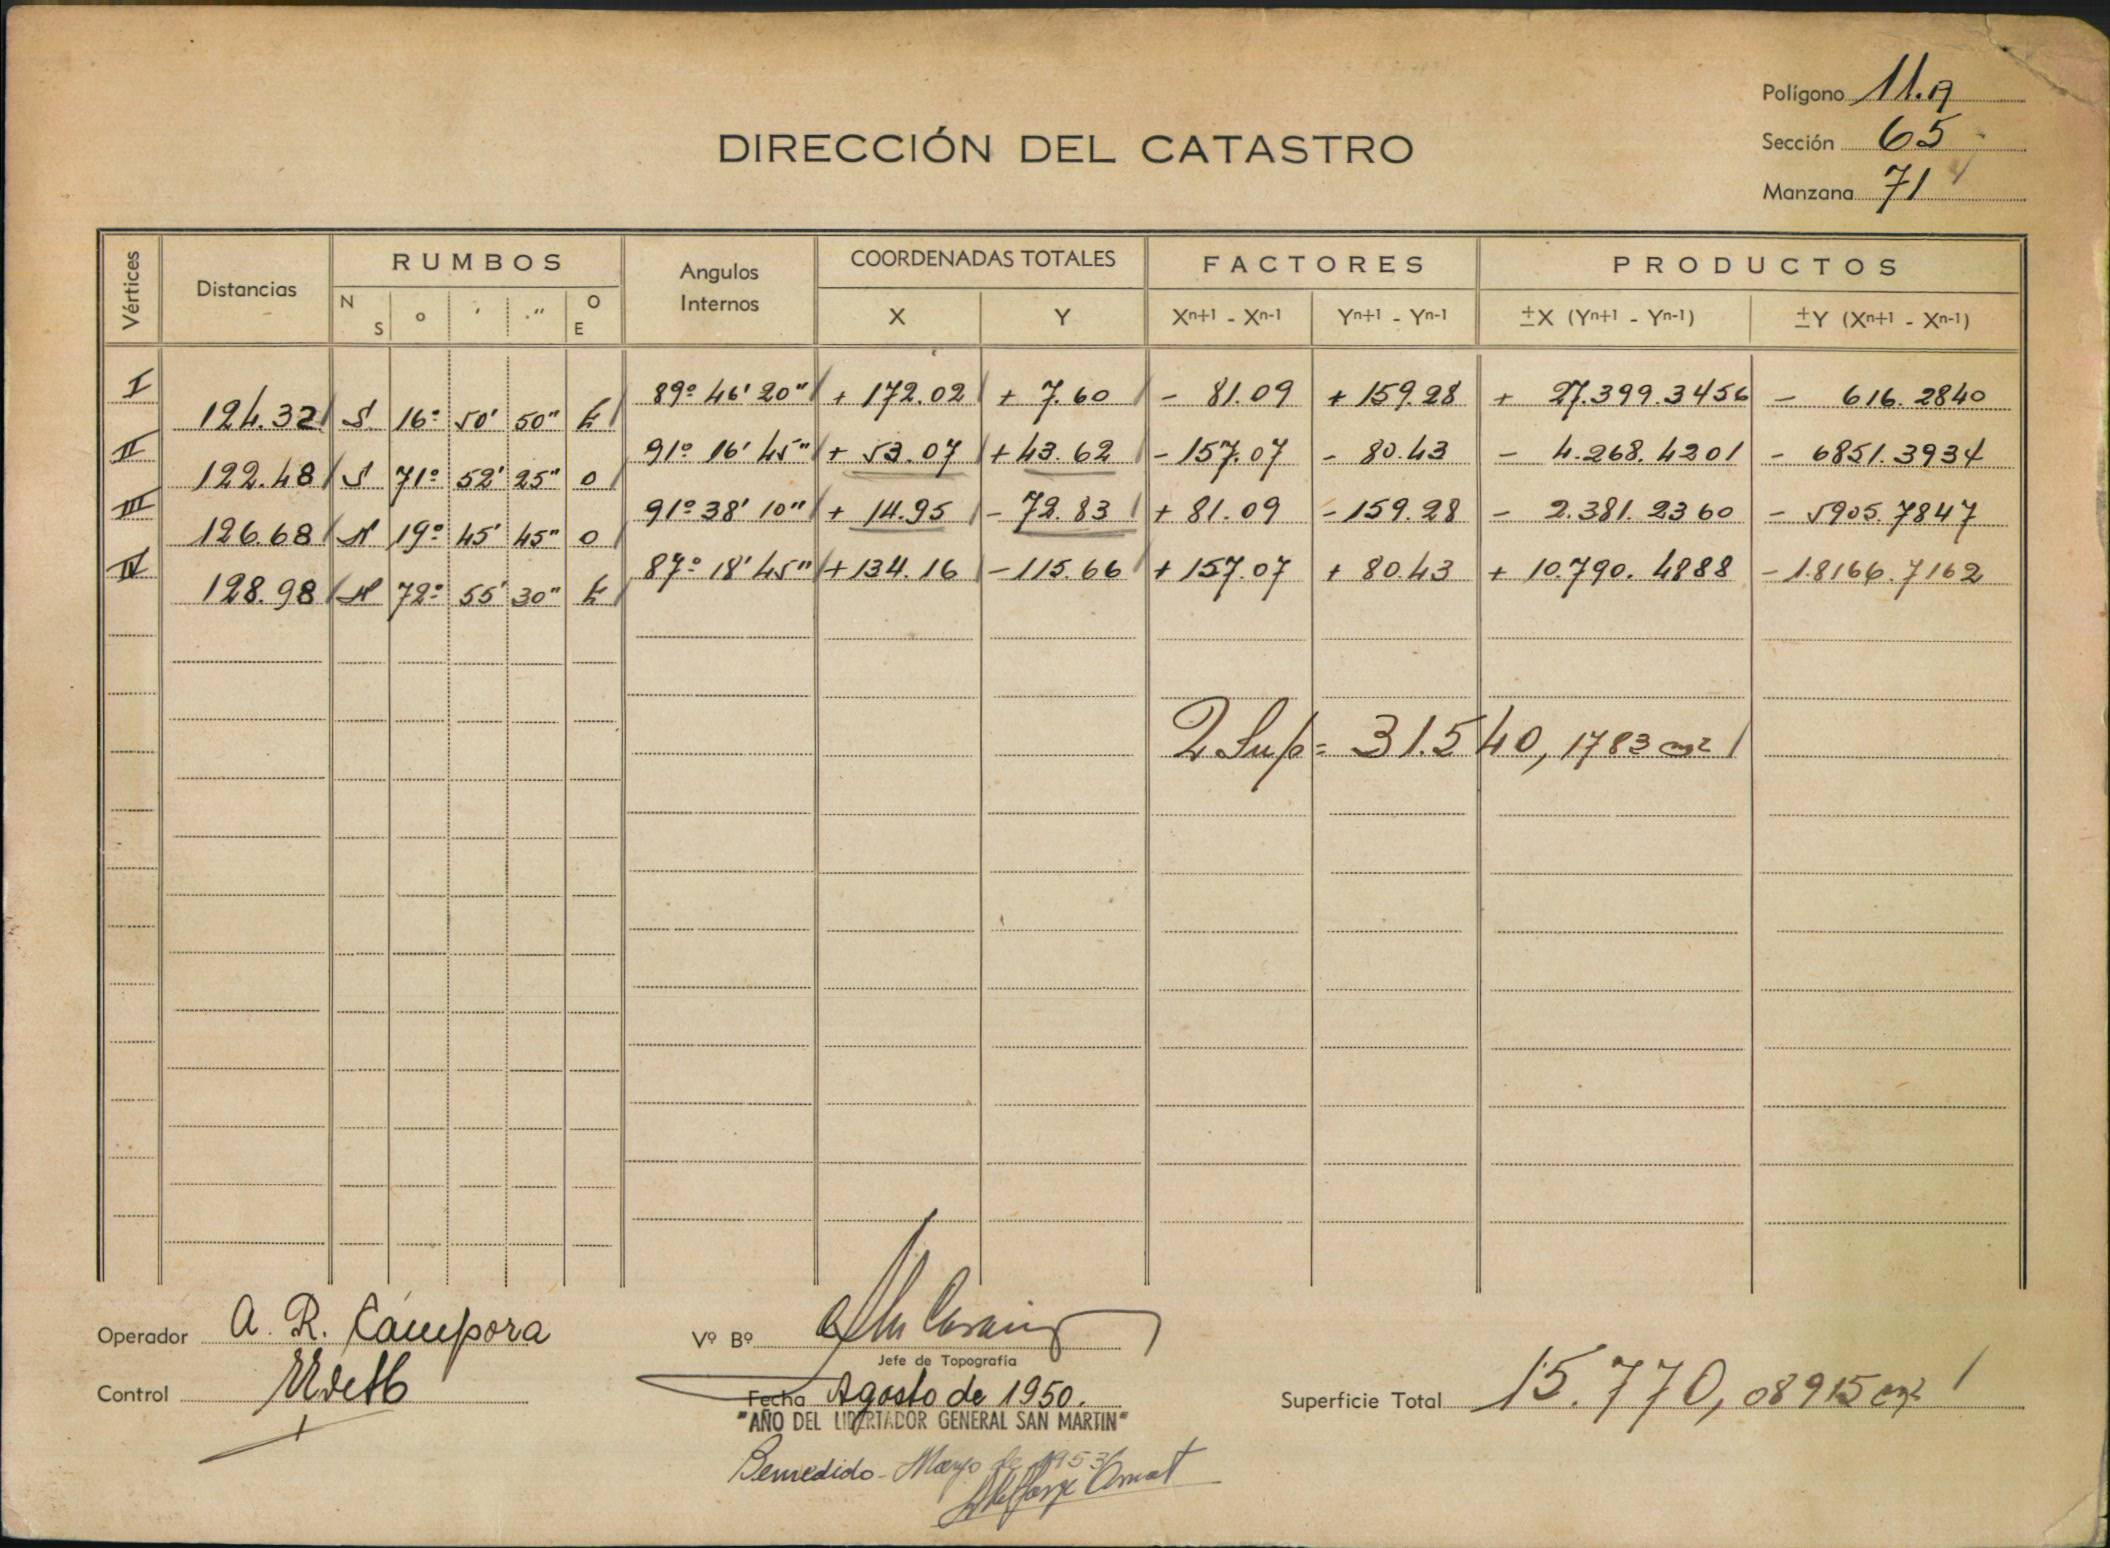 Polígono 11.A
Sección 65
Manzana 71
DIRECCIÓN DEL CATASTRO
Vértices Distancias RUMBOS Angulos Internos COORDENADAS TOTALES FACTORES PRODUCTOS
N S o ' " O E X Y Xn+1 - Xn-1 Yn+1 - Yn-1 ±X (Yn+1 - Yn-1) ±Y (Xn+1 - Xn-1)
I 89º 46' 20" + 172.02 + 7.60 - 81.09 + 159.28 + 27.399.3456 - 616.2840
124.32 S 16º 50' 50" E
II 91º 16' 45" + 53.07 + 43.62 - 157.07 - 80.43 - 4.268.4201 - 6851.3934
122.48 S 71º 52' 25" O
III 91º 38' 10" + 14.95 - 72.83 + 81.09 - 159.28 - 2.381.2360 - 5905.7847
126.68 N 19º 45' 45" O
IV 87º 18' 45" + 134.16 - 115.66 + 157.07 + 80.43 + 10.790.4888 - 18166.7162
128.98 N 72º 55' 30" E
2 Sup = 31.540,1783 m2
Operador A. R. Cámpora
Vº Bº
Jefe de Topografía
Control
Fecha Agosto de 1950.
Superficie Total 15.770,08915 m2
"AÑO DEL LIBERTADOR GENERAL SAN MARTIN"
Marzo de 1953